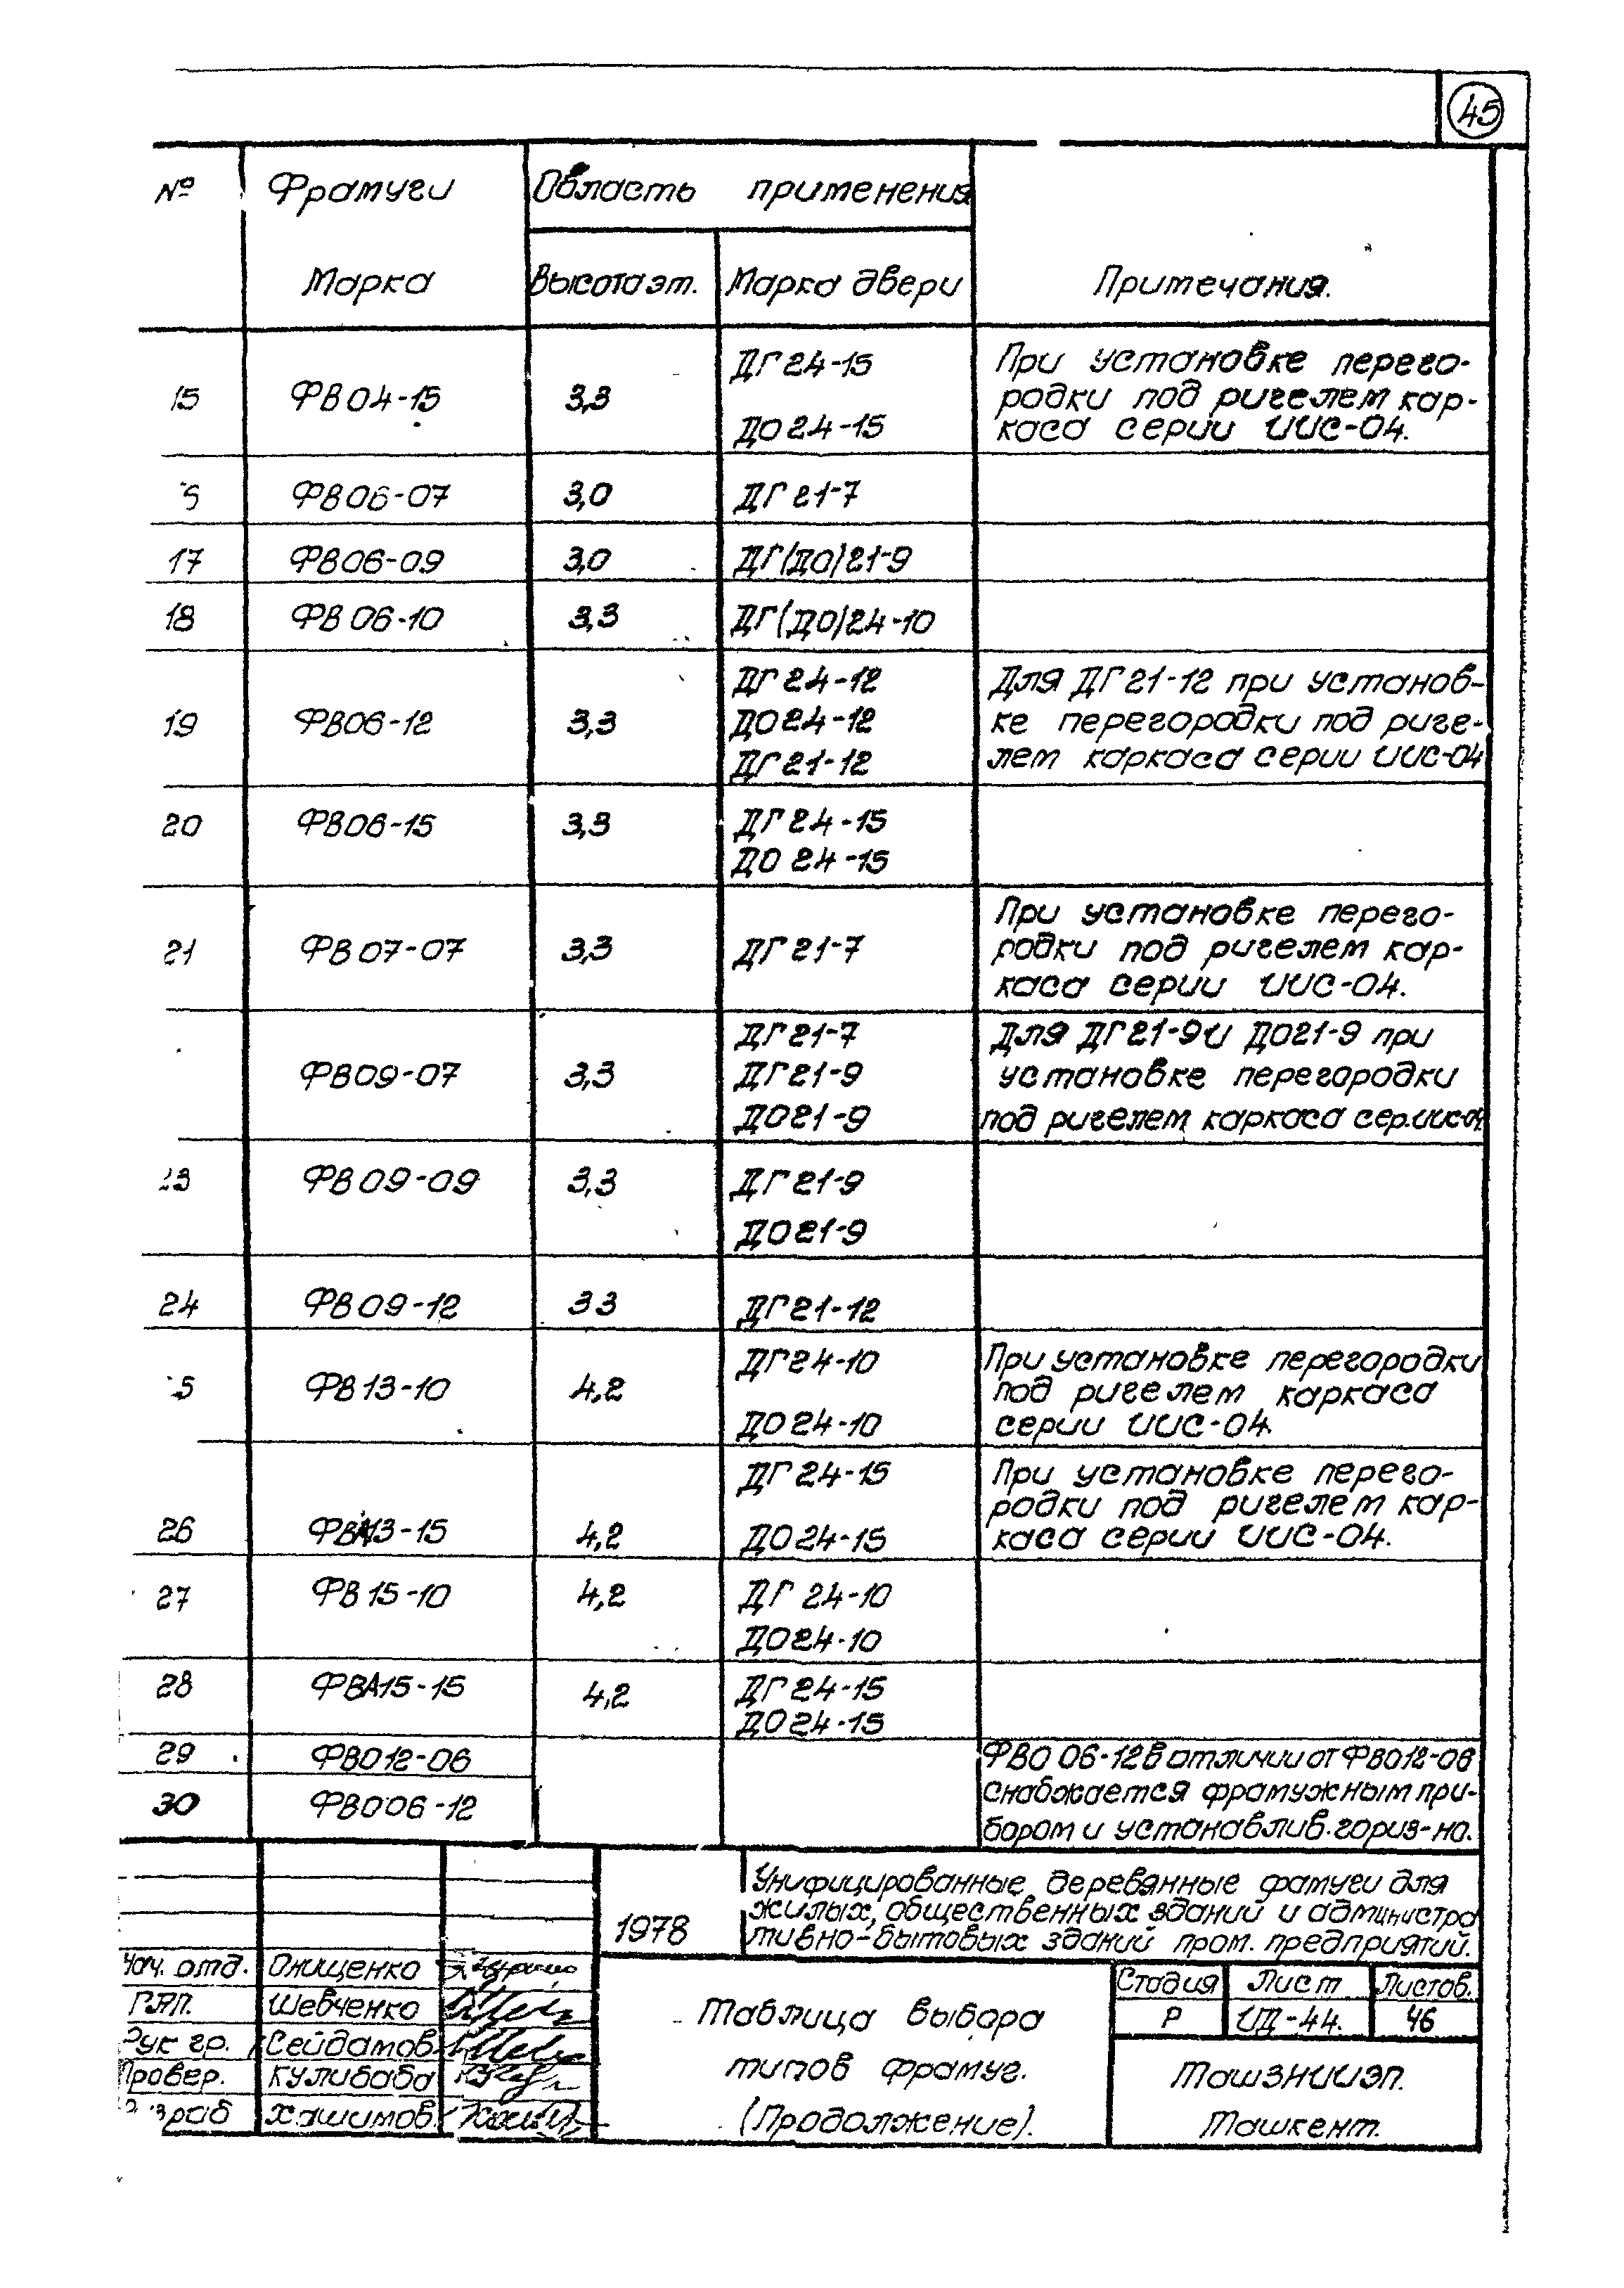 45
№ Фрамуги Область применения
Марка Высота эт. Марка двери Примечания.
15 ФВ04-15 3,3 ДГ24-15 ДО24-15
При установке перего-
родки под ригелем кар-
каса серии ИИС-04.
ФВ06-07 3,0 ДГ21-7
17 ФВ06-09 3,0 ДГ(ДО)21-9
18 ФВ06-10 3,3 ДГ(ДО)24-10
19 ФВ06-12 3,3 ДГ24-12
ДО24-12
ДГ21-12
Для ДГ21-12 при установ-
ке перегородки под риге-
лем каркаса серии ИИС-04
20 ФВ06-15 3,3 ДГ24-15
ДО24-15
21 ФВ07-07 3,3 ДГ21-7
При установке перего-
родки под ригелем кар-
каса серии ИИС-04.
ФВ09-07 3,3 ДГ21-7
ДГ21-9
ДО21-9
Для ДГ21-9 и ДО21-9 при
установке перегородки
под ригелем каркаса сер.ИИС-04
23 ФВ09-09 3,3 ДГ21-9
ДО21-9
24 ФВ09-12 3 3 ДГ21-12
5 ФВ13-10 4,2 ДГ24-10
ДО24-10
При установке перегородки
под ригелем каркаса
серии ИИС-04.
26 ФВА13-15 4,2 ДГ24-15
ДО24-15
При установке перего-
родки под ригелем кар-
каса серии ИИС-04.
27 ФВ15-10 4,2 ДГ 24-10
ДО24-10
28 ФВА15-15 4,2 ДГ24-15
ДО24-15
29 ФВО12-06
30 ФВО06-12
ФВО 06-12 в отличии от ФВО12-06
снабжается фрамужным при-
бором и устанавлив.гориз-но.
1978
Унифицированные деревянные фамуги для
жилых, общественных зданий и администра
тивно-бытовых зданий пром. предприятий.
Нач. отд. Онищенко
ГАП. Шевченко
Рук гр. Сейдамов.
Провер. Кулибаба
раб Хашимов.
Таблица выбора
типов фрамуг.
(Продолжение).
Стадия Лист Листов.
Р ИД-44. 46
ТашЗНИИЭП.
Ташкент.